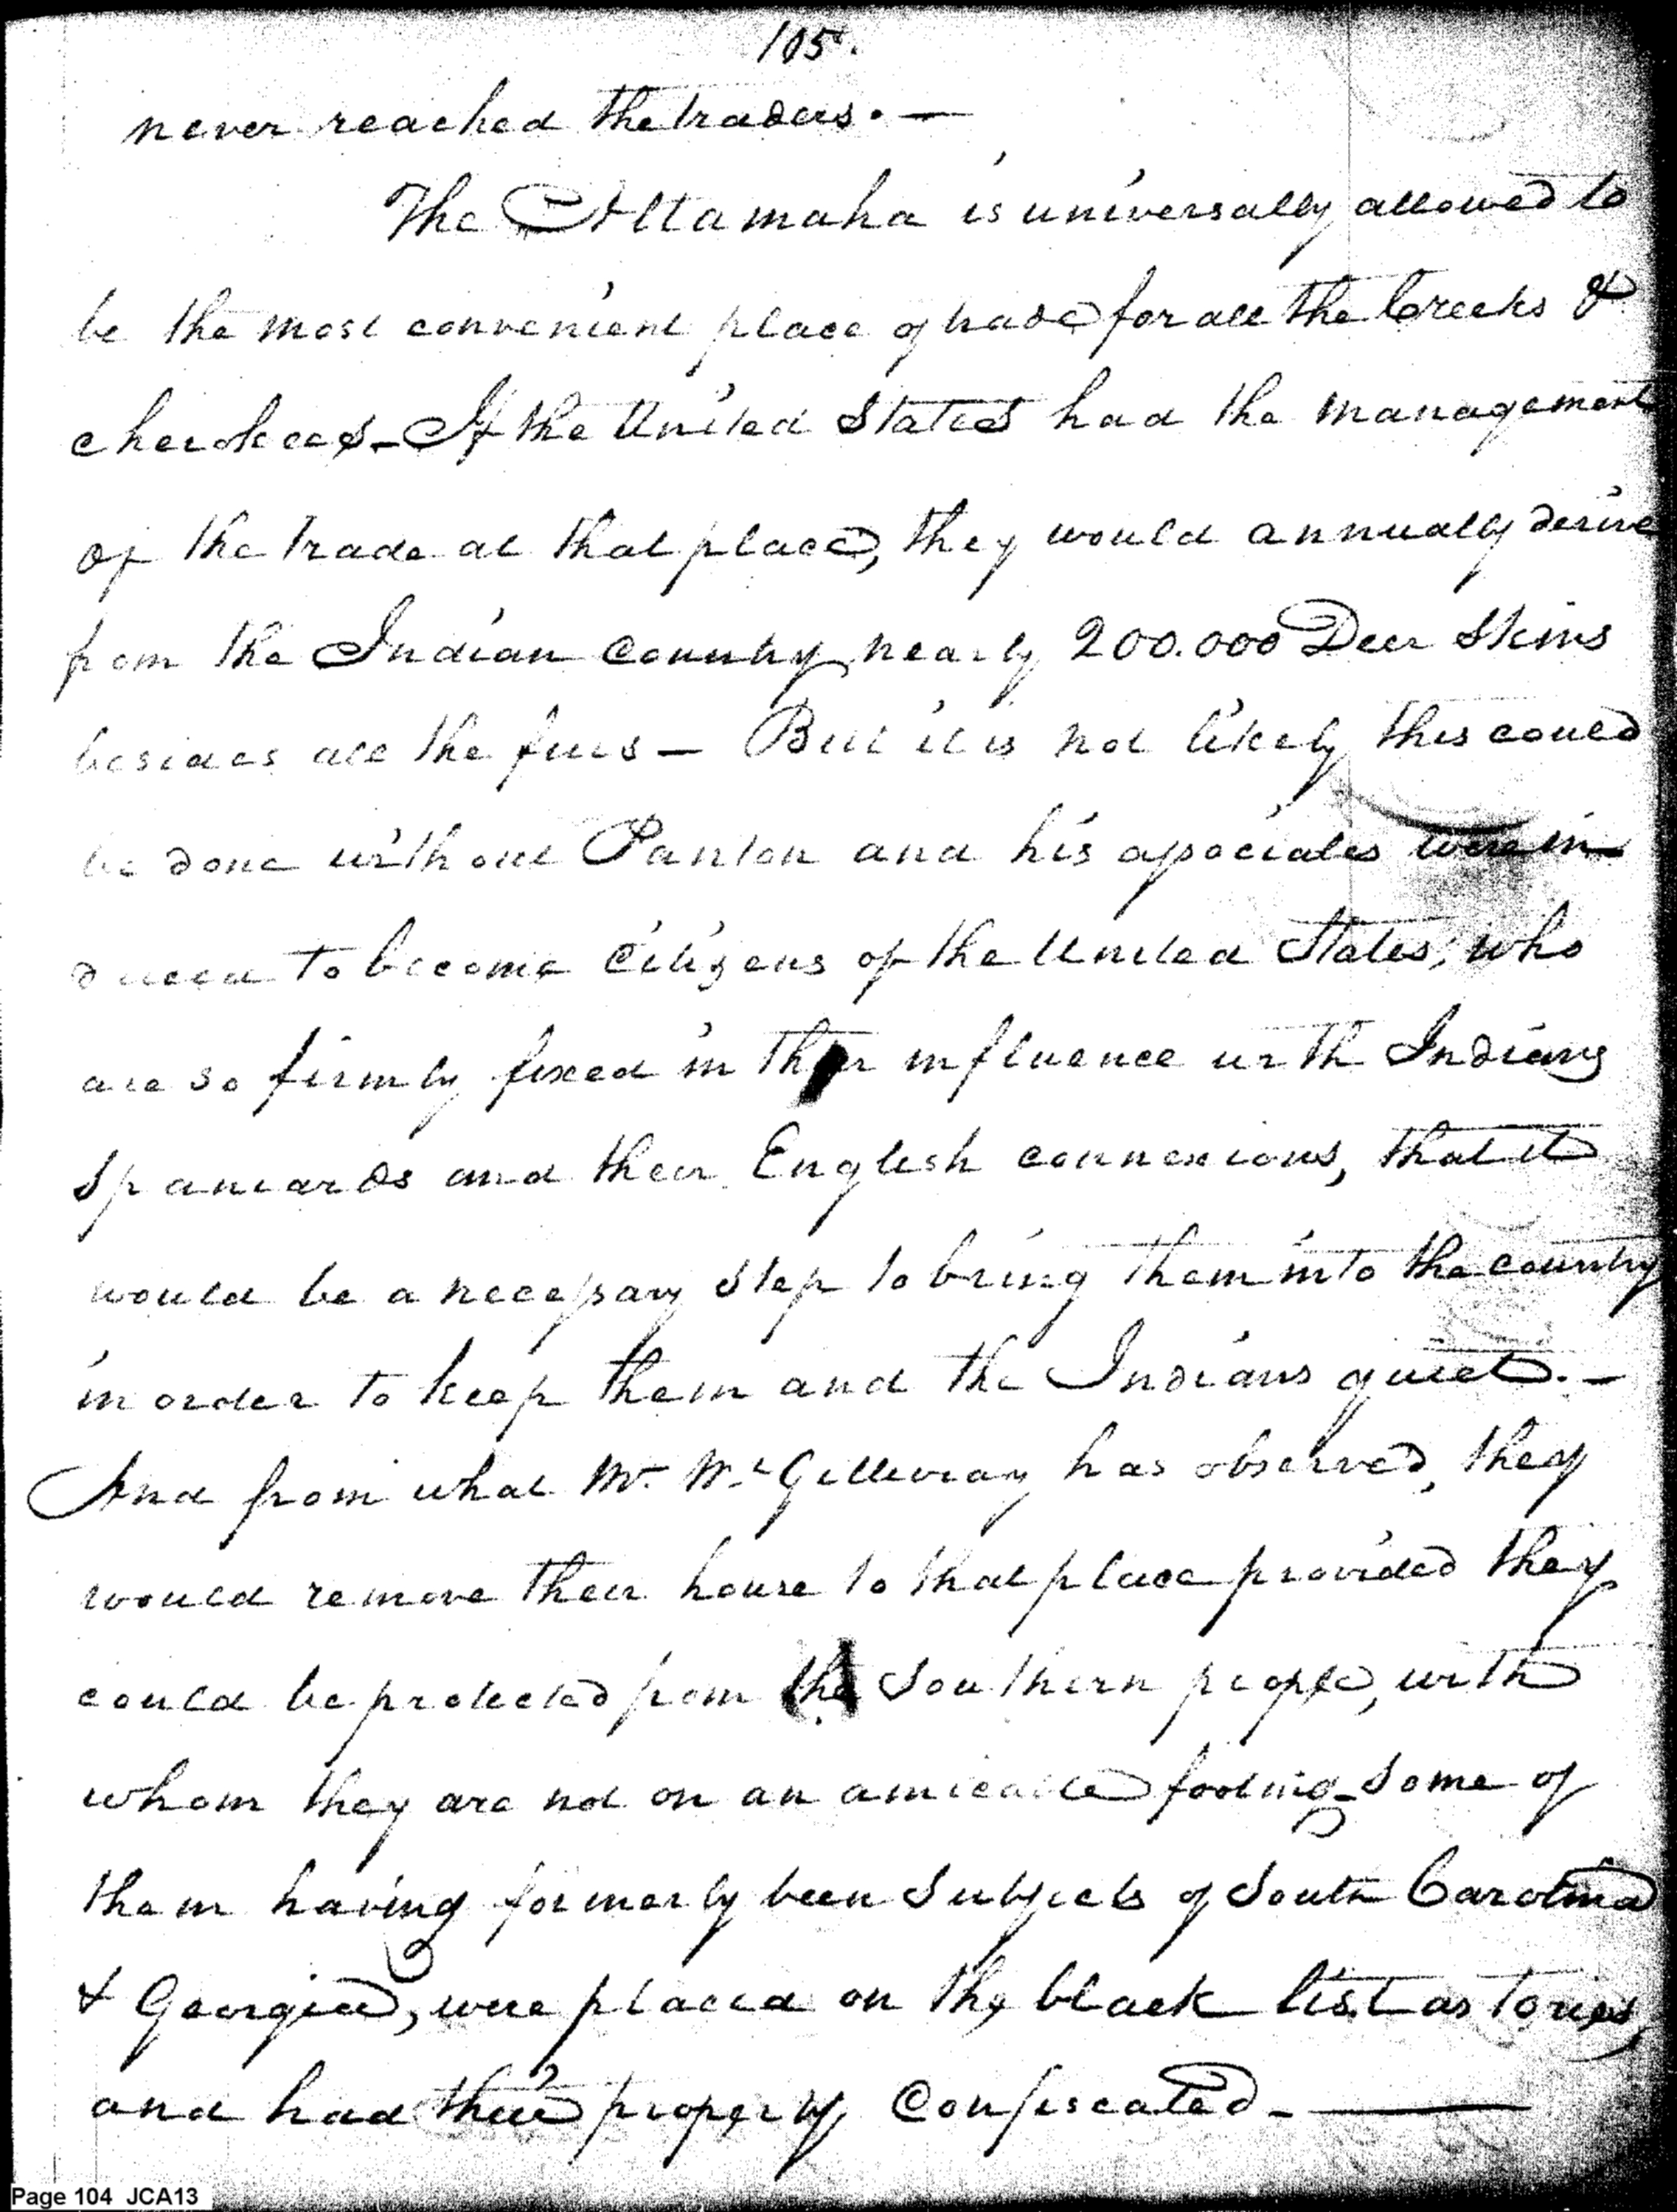 105.
never reached the traders. —
The Altamaha is universally allowed to
be the most convenient place of trade for all the Creeks &
cherokees - If the United States had the management
of the trade at that place, they would annually derive
from the Indian Country nearly 200.000 Deer Skins
besides all the furs — But it is not likely this could
be done without Panton and his associates were in
duced to become Citizens of the United States; who
are so firmly fixed in their influence with Indians
Spaniards and their English connexions, that it
would be a necessary step to bring them into the country
in order to keep them and the Indians quiet. —
And from what Mr. McGillivray has observed, they
would remove their house to that place provided they
could be protected from the Southern people, with
whom they are not on an amicable footing - Some of
them having formerly been Subjects of South Carolina
& Georgia, were placed on the black list as tories,
and had their property Confiscated - —
Page 104 JCA13